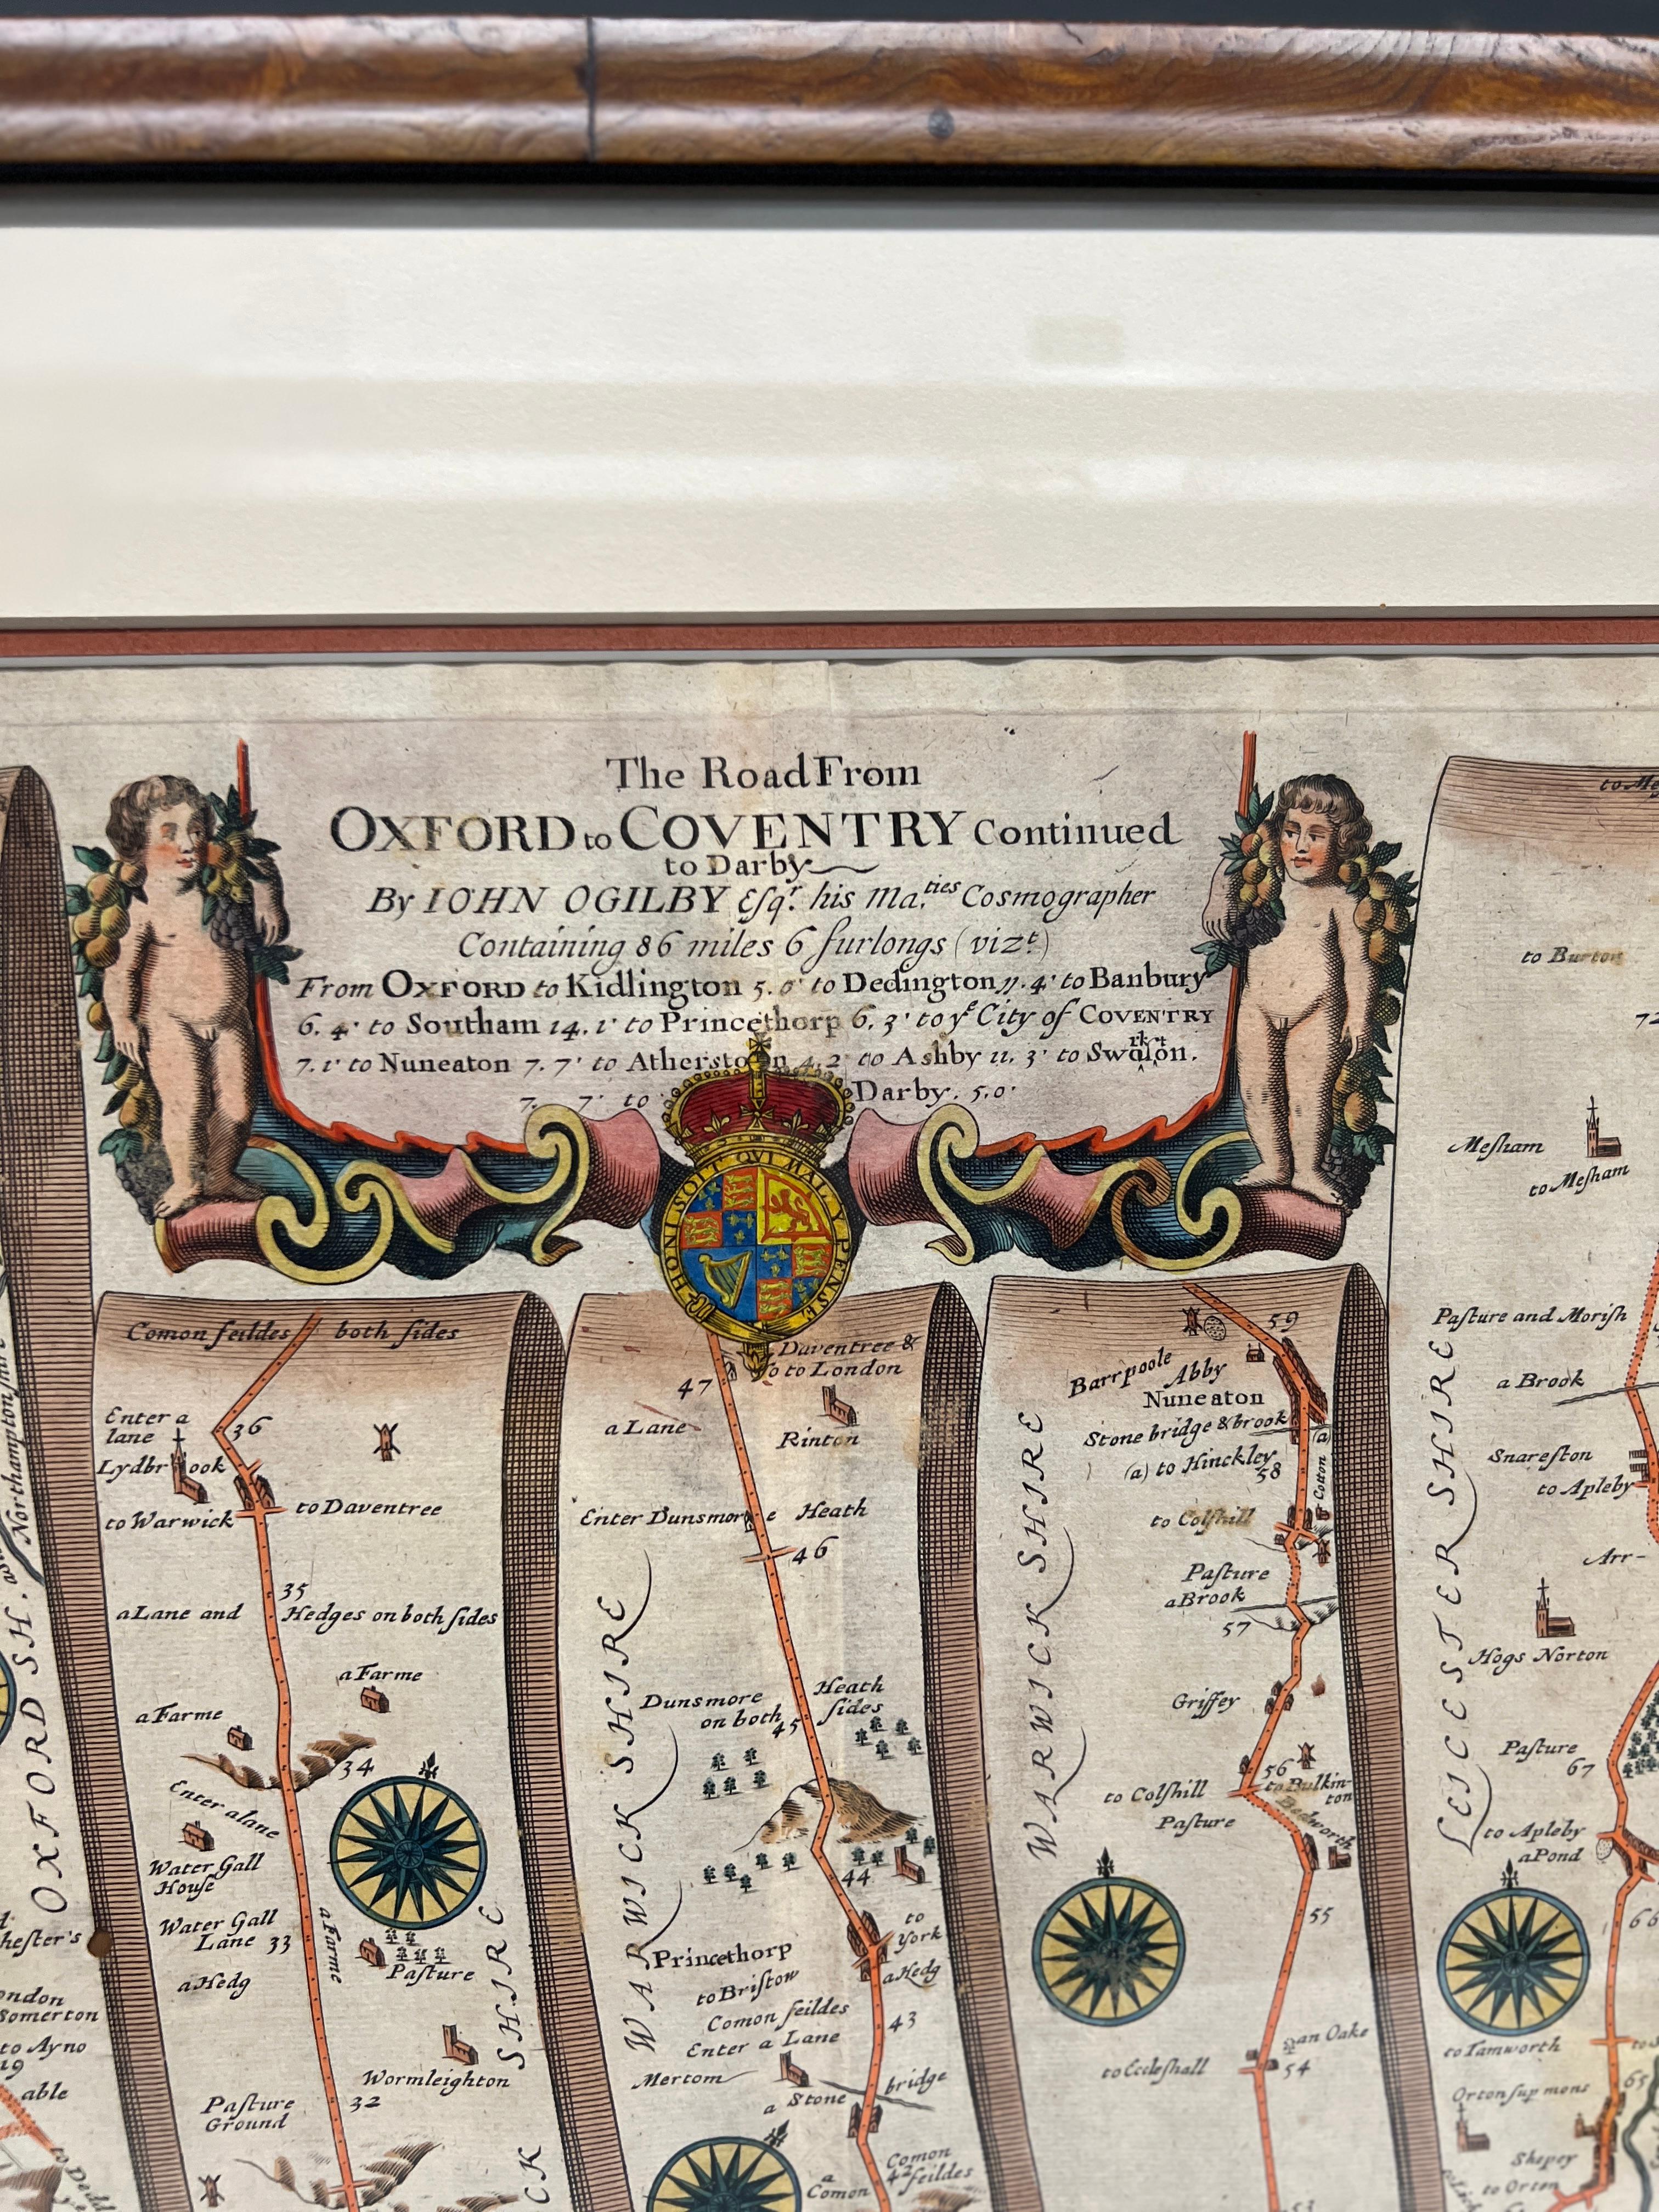 The Road From
OXFORD to COVENTRY Continued
to Darby
By IOHN OGILBY Esqr. his Ma.ties Cosmographer
Containing 86 miles 6 furlongs (vizt.)
From OXFORD to Kidlington 5. 0' to Dedington 11. 4' to Banbury
6. 4' to Southam 14. 1' to Princethorp 6. 3' to ye City of COVENTRY
7. 1' to Nuneaton 7. 7' to Atherstoon 4. 2' to Ashby 11. 3' to Swarkston.
7. 7' to Darby. 5. 0'
HONI SOIT QVI MAL Y PENSE
Northamptonshire
OXFORD SH.
hester's
ondon
Somerton
to Ayno
19
able
Comon feildes both sides
Enter a
lane
36
Lydbrook
to Warwick
to Daventree
35
a Lane and Hedges on both sides
a Farme
a Farme
34
Enter a lane
Water Gall
House
Water Gall
Lane 33
a Farme
a Hedg
Pasture
Wormleighton
Pasture
Ground
32
CK SHIRE
Daventree &
to London
47
a Lane
Rinton
Enter Dunsmore Heath
46
WARWICK SHIRE
Dunsmore Heath
on both sides
45
44
to
York
Princethorp
a Hedg
to Bristow
Comon feildes
43
Enter a Lane
Mertom
a Stone bridge
Comon
42 feildes
a
Comon
59
Barrpoole
Abby
Nuneaton
Stone bridge & brook
(a)
(a) to Hinckley
58
Cotton
to Colshill
WARWICK SHIRE
Pasture
a Brook
57
Griffey
56
to Colshill
to Bulkin-
ton
Pasture
Bedworth
55
an Oake
to Eccleshall
54
53
to Burton
72
Mesham
to Mesham
Pasture and Morish
a Brook
LEICESTER SHIRE
Snareston
to Apleby
Arr-
Hogs Norton
Pasture
67
to Apleby
a Pond
66
to Tamworth
65
Orton sup mons
Shepey
to Orton